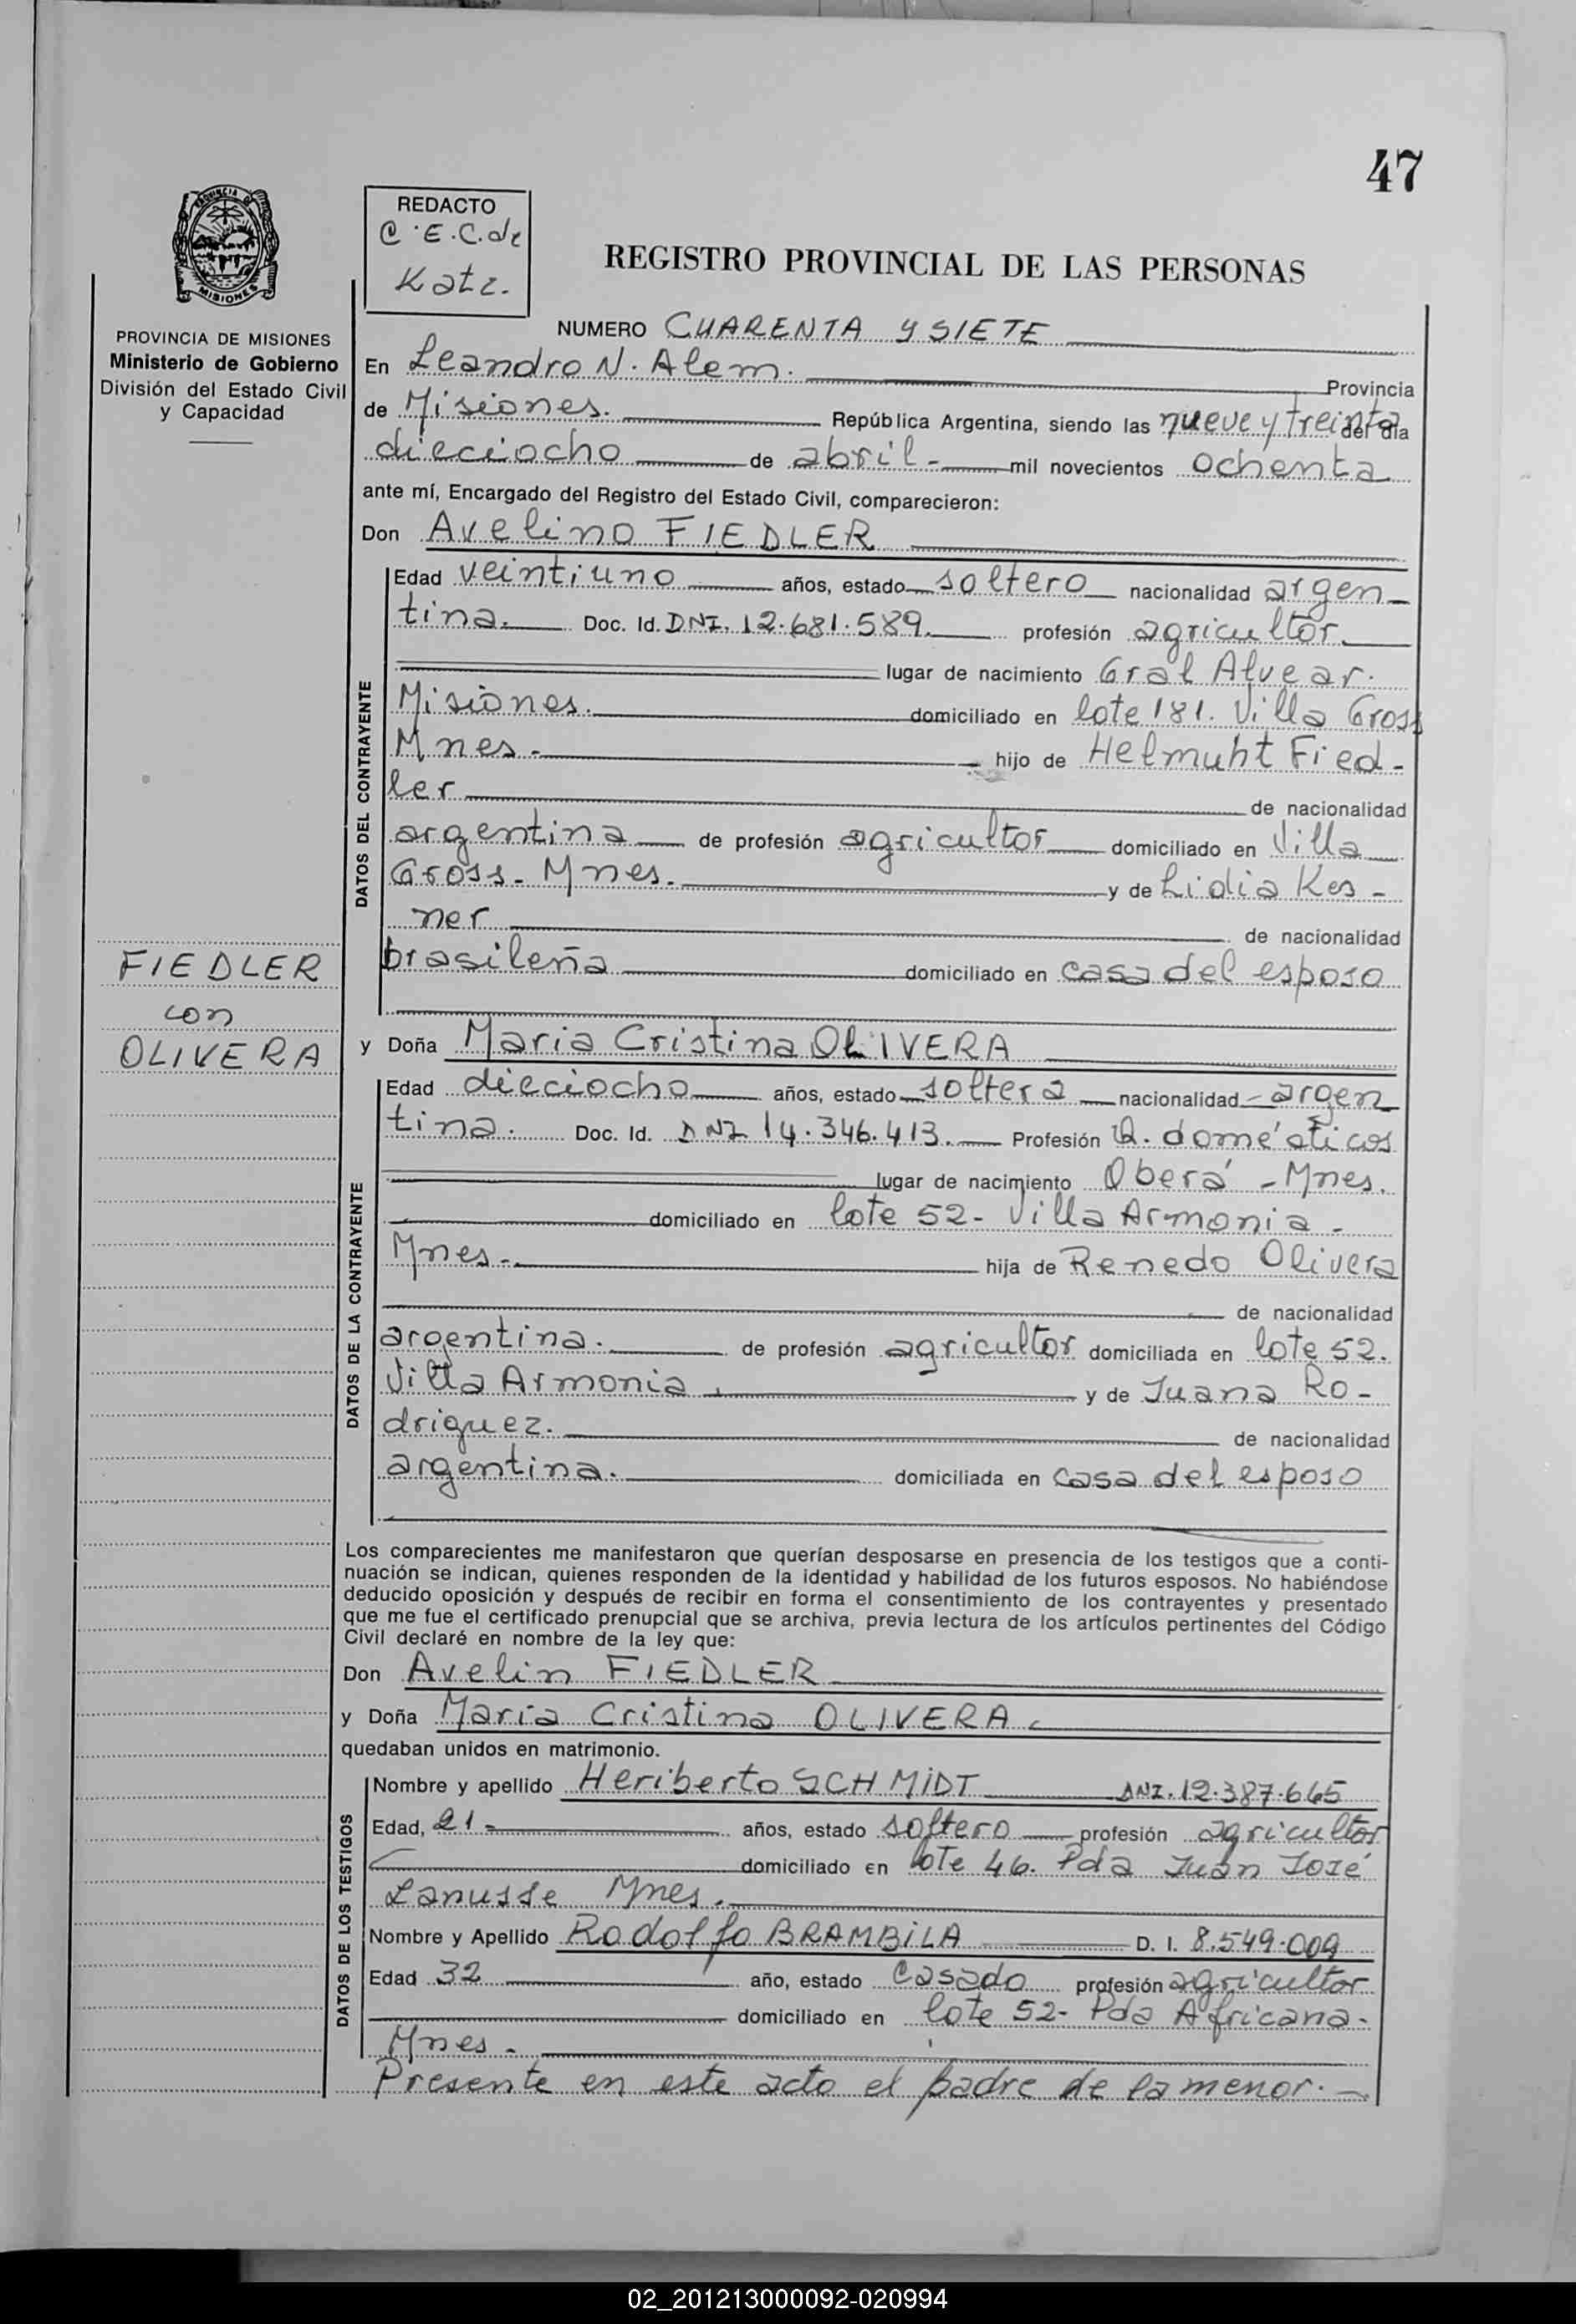 47
PROVINCIA DE MISIONES
REDACTO
C.E.C. de
Katz.
REGISTRO PROVINCIAL DE LAS PERSONAS
PROVINCIA DE MISIONES
Ministerio de Gobierno
División del Estado Civil
y Capacidad
NUMERO CUARENTA Y SIETE
En Leandro N. Alem. Provincia
de Misiones. República Argentina, siendo las nueve y treinta del día
dieciocho de abril - mil novecientos ochenta
ante mí, Encargado del Registro del Estado Civil, comparecieron:
Don Avelino FIEDLER
DATOS DEL CONTRAYENTE
Edad veintiuno años, estado soltero nacionalidad argen-
tina. Doc. Id. DNI. 12.681.589. profesión agricultor.
lugar de nacimiento Gral Alvear.
Misiones. domiciliado en lote 181. Villa Gross
Mnes. - hijo de Helmuht Fied-
ler de nacionalidad
argentina de profesión agricultor domiciliado en Villa
Gross - Mnes. y de Lidia Kes-
ner de nacionalidad
brasileña domiciliado en casa del esposo
FIEDLER
con
OLIVERA
y Doña Maria Cristina OLIVERA
DATOS DE LA CONTRAYENTE
Edad dieciocho años, estado soltera nacionalidad argen
tina. Doc. Id. DNI 14.346.413. Profesión Q. domésticos
lugar de nacimiento Oberá - Mnes.
domiciliado en lote 52 - Villa Armonia -
Mnes. - hija de Renedo Olivera
de nacionalidad
argentina. de profesión agricultor domiciliada en lote 52.
Villa Armonia, y de Juana Ro-
driguez. de nacionalidad
argentina. domiciliada en casa del esposo
Los comparecientes me manifestaron que querían desposarse en presencia de los testigos que a conti-
nuación se indican, quienes responden de la identidad y habilidad de los futuros esposos. No habiéndose
deducido oposición y después de recibir en forma el consentimiento de los contrayentes y presentado
que me fue el certificado prenupcial que se archiva, previa lectura de los artículos pertinentes del Código
Civil declaré en nombre de la ley que:
Don Avelin FIEDLER
y Doña Maria Cristina OLIVERA.
quedaban unidos en matrimonio.
DATOS DE LOS TESTIGOS
Nombre y apellido Heriberto SCHMIDT DNI. 12.387.665
Edad, 21 - años, estado soltero profesión agricultor
domiciliado en lote 46. Pda Juan José
Lanusse Mnes.
Nombre y Apellido Rodolfo BRAMBILA D. I. 8.549.009
Edad 32 año, estado Casado profesión agricultor
domiciliado en lote 52 - Pda Africana -
Mnes. -
Presente en este acto el padre de la menor. -
02_201213000092-020994